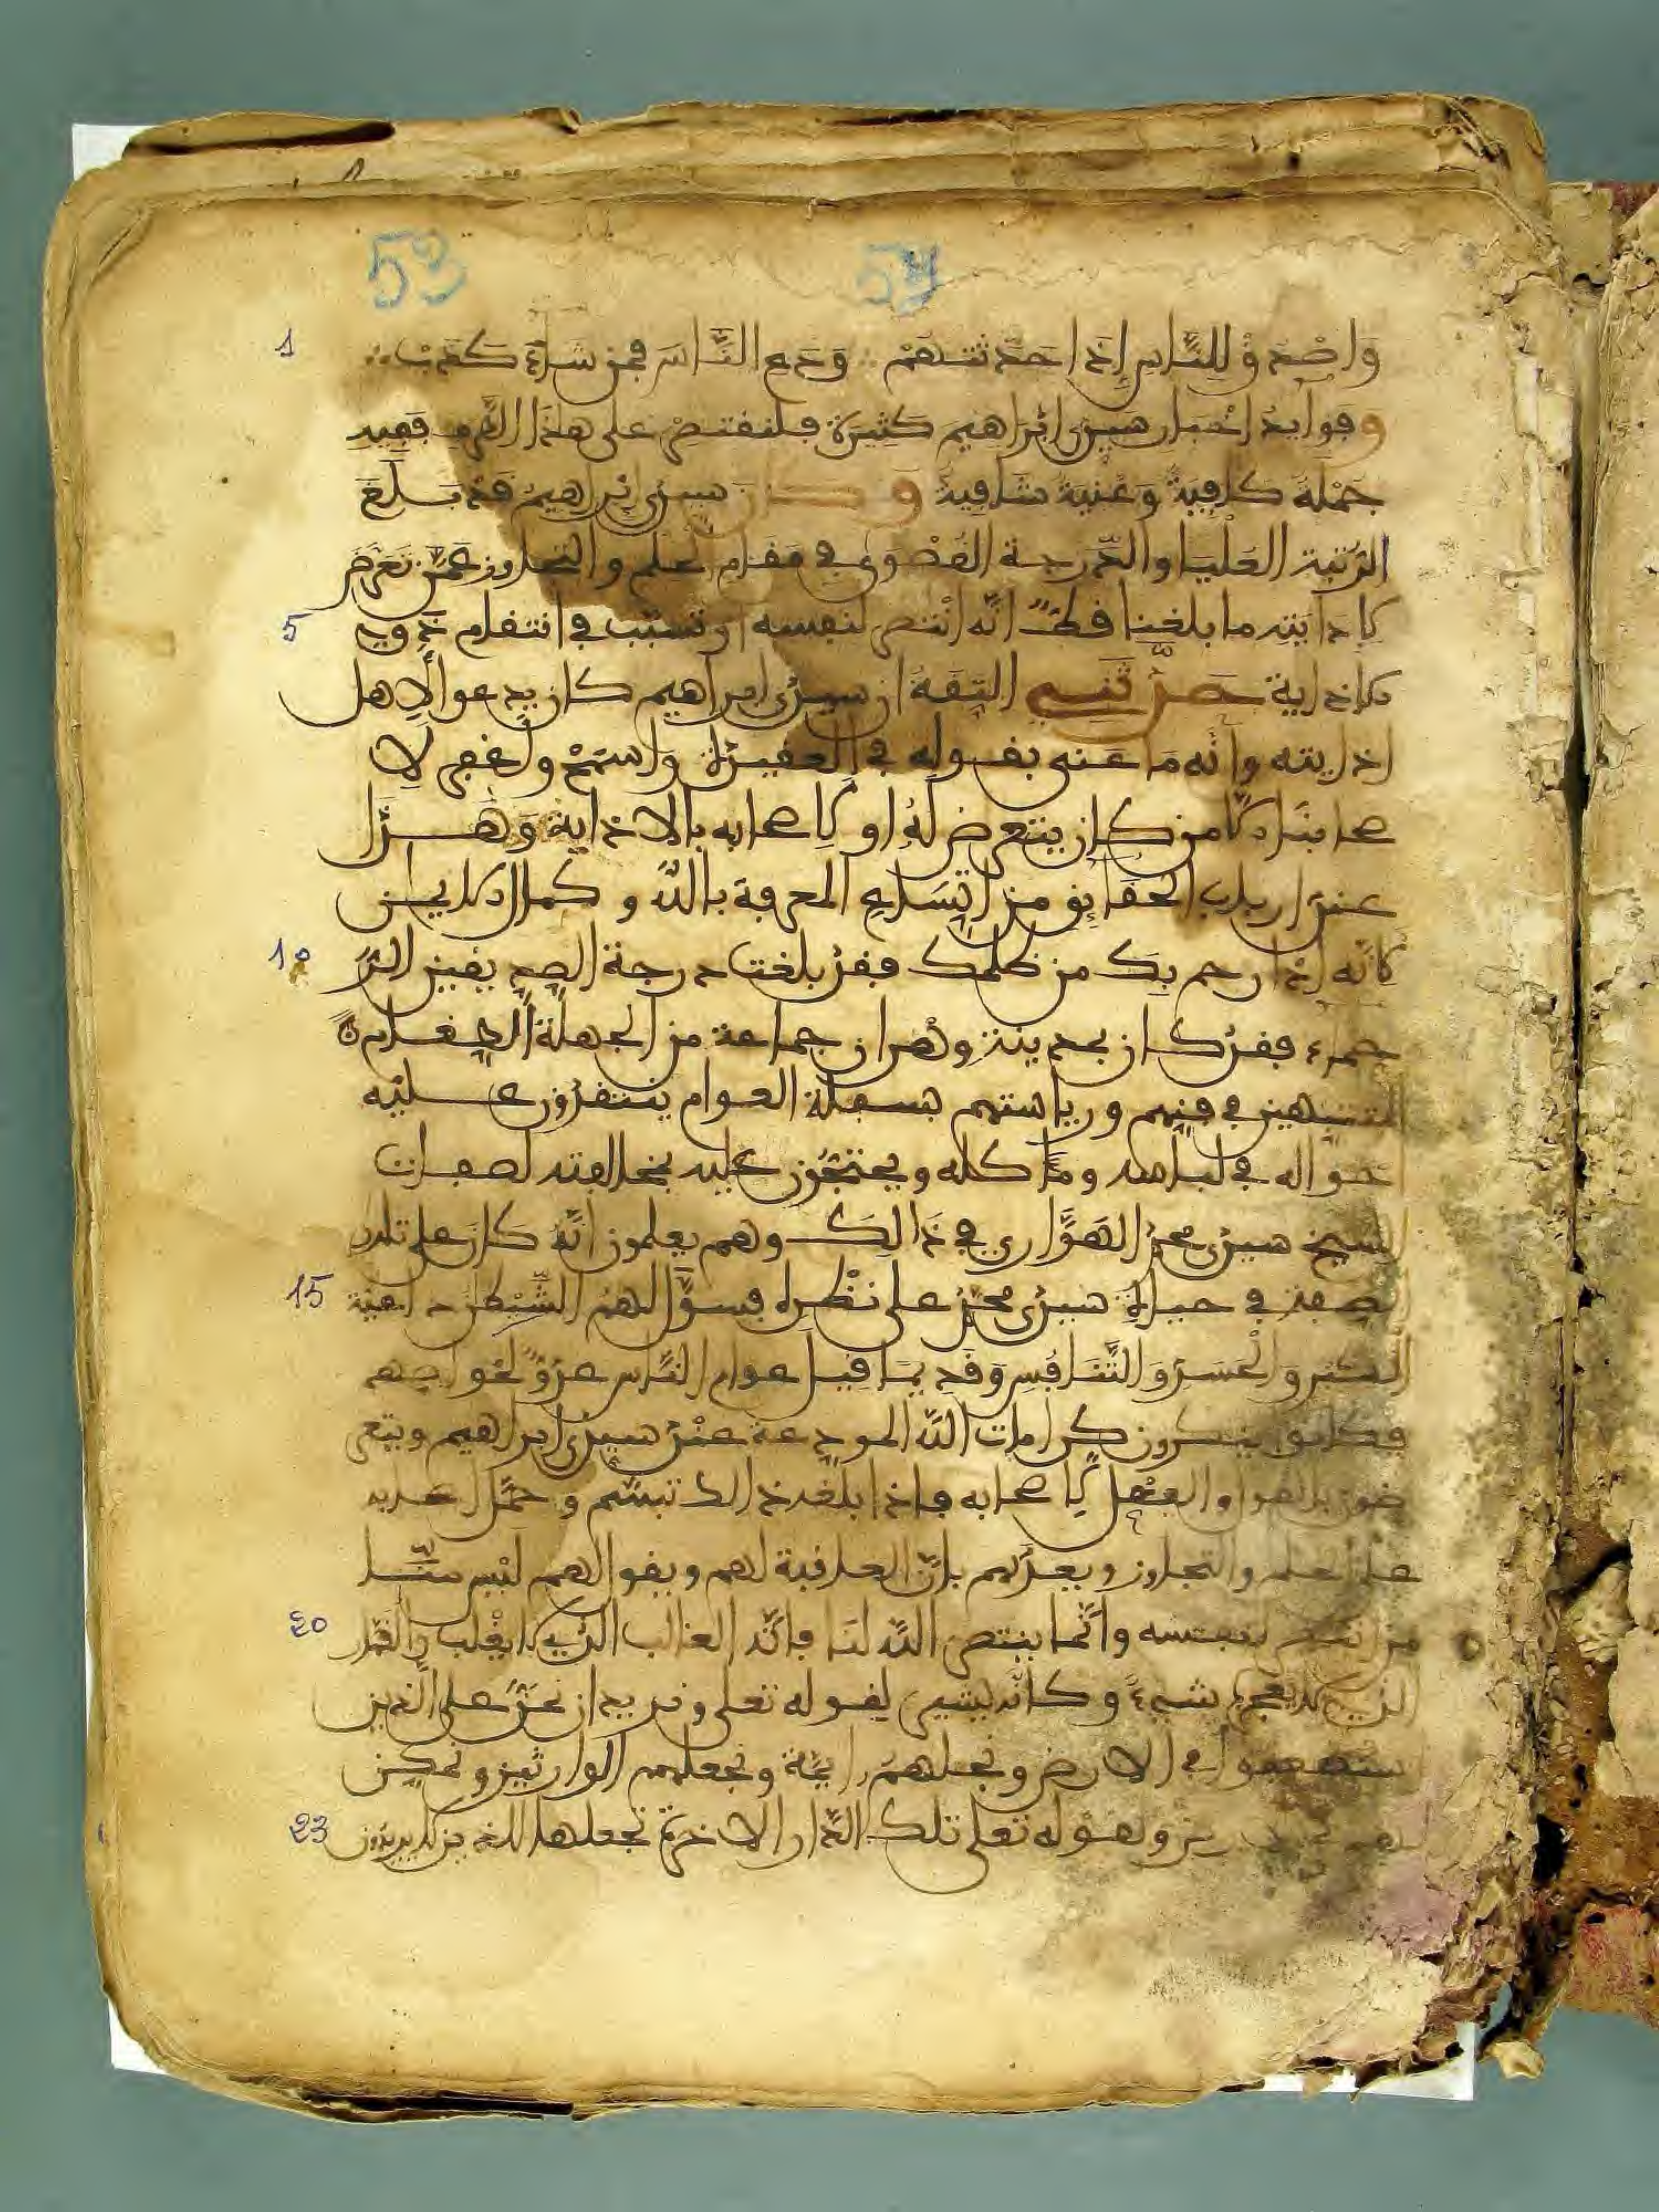 53 54
1 وَاصْدُقْ لِلنَّاسِ إِذَا حَدَّثْتَهُمْ وَدَعِ النَّاسَ فَمَن شَاءَ كَذَبْ
وفوايد اخبار سيدي ابراهيم كثيرة فلنقتصر على هذا القدر ففيه
جملة كافية وغنية شافية وكان سيدي ابراهيم قد بلغ
الرتبة العليا والدرجة القصوى في مقام الحلم والتجاوز عمن تعرض
5 لاذايته ما بلغنا قط انه انتصر لنفسه او تسبب في انتقام ذوي
الاذاية حدثني الثقة ان سيدي ابراهيم كان يدعوا لاهل
اذايته وانه ما عنى بقوله في العقيدة واسمح واغفر لا
صحابنا الا من كان يتعرض له او لاصحابه بالاذاية وهذا
عند ارباب الحقائق من اتساع المعرفة بالله وكمال الايمان
10 لانه اذا رحم بك من ظلمك فقد بلغت درجة الصديقين الر
حماء فقد كان بمدينة وهران جماعة من الجهلة الطغام
في فيهم ورياستهم بسفلة العوام ينتقدون عليه
احواله في لباسه وماكله ويحتجون عليه بمخالفته لصفات
الشيخ سيدي محمد الهواري في ذالك وهم يعلمون انه كان على تلك
15 الصفة في حياة سيدي محمد على نظره فسول لهم الشيطان داعية
الكبر والحسد والتنافس وقديما قيل عوام الناس عدو لخواصهم
فكانوا ينكرون كرامات الله المودعة عند سيدي ابراهيم ويتعر
ضون بالقول والفعل لاصحابه فاذا بلغه ذالك تبسم وحمل احبابه
على الحلم والتجاوز ويعدهم بان العافية لهم ويقول لهم ليس منا
20 من انتصر لنفسه وانما ينتصر الله لنا فانه الغالب الذي لا يغلب والقادر
الذي لا يعجزه شيء وكانه يشير لقوله تعلى ونريد ان نمن على الذين
استضعفوا في الارض ونجعلهم ايمة ونجعلهم الوارثين ونمكن
23 لهم في ولقوله تعلى تلك الدار الاخرة نجعلها للذين لا يريدون